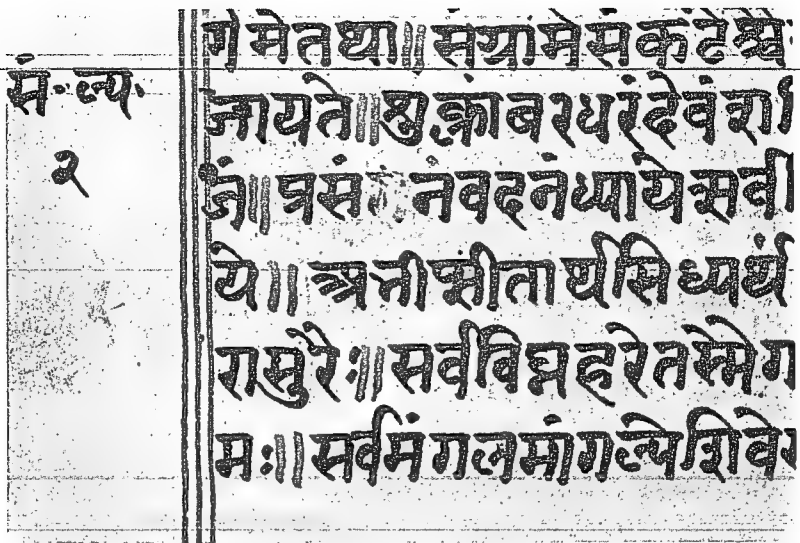 सं॰ल्प॰
२
र्गमेतथा॥संग्रामेसंकटेश्चै
जायते॥शुक्लांबरधरंदेवंश
जं॥प्रसंनंवदनंध्यायेत्सर्वी
ये॥अभीप्सीतार्थसिध्यर्थं
रासुरैः॥सर्वविघ्नहरेतस्मैग
मः॥सर्वमंगलमांगल्येशिवे